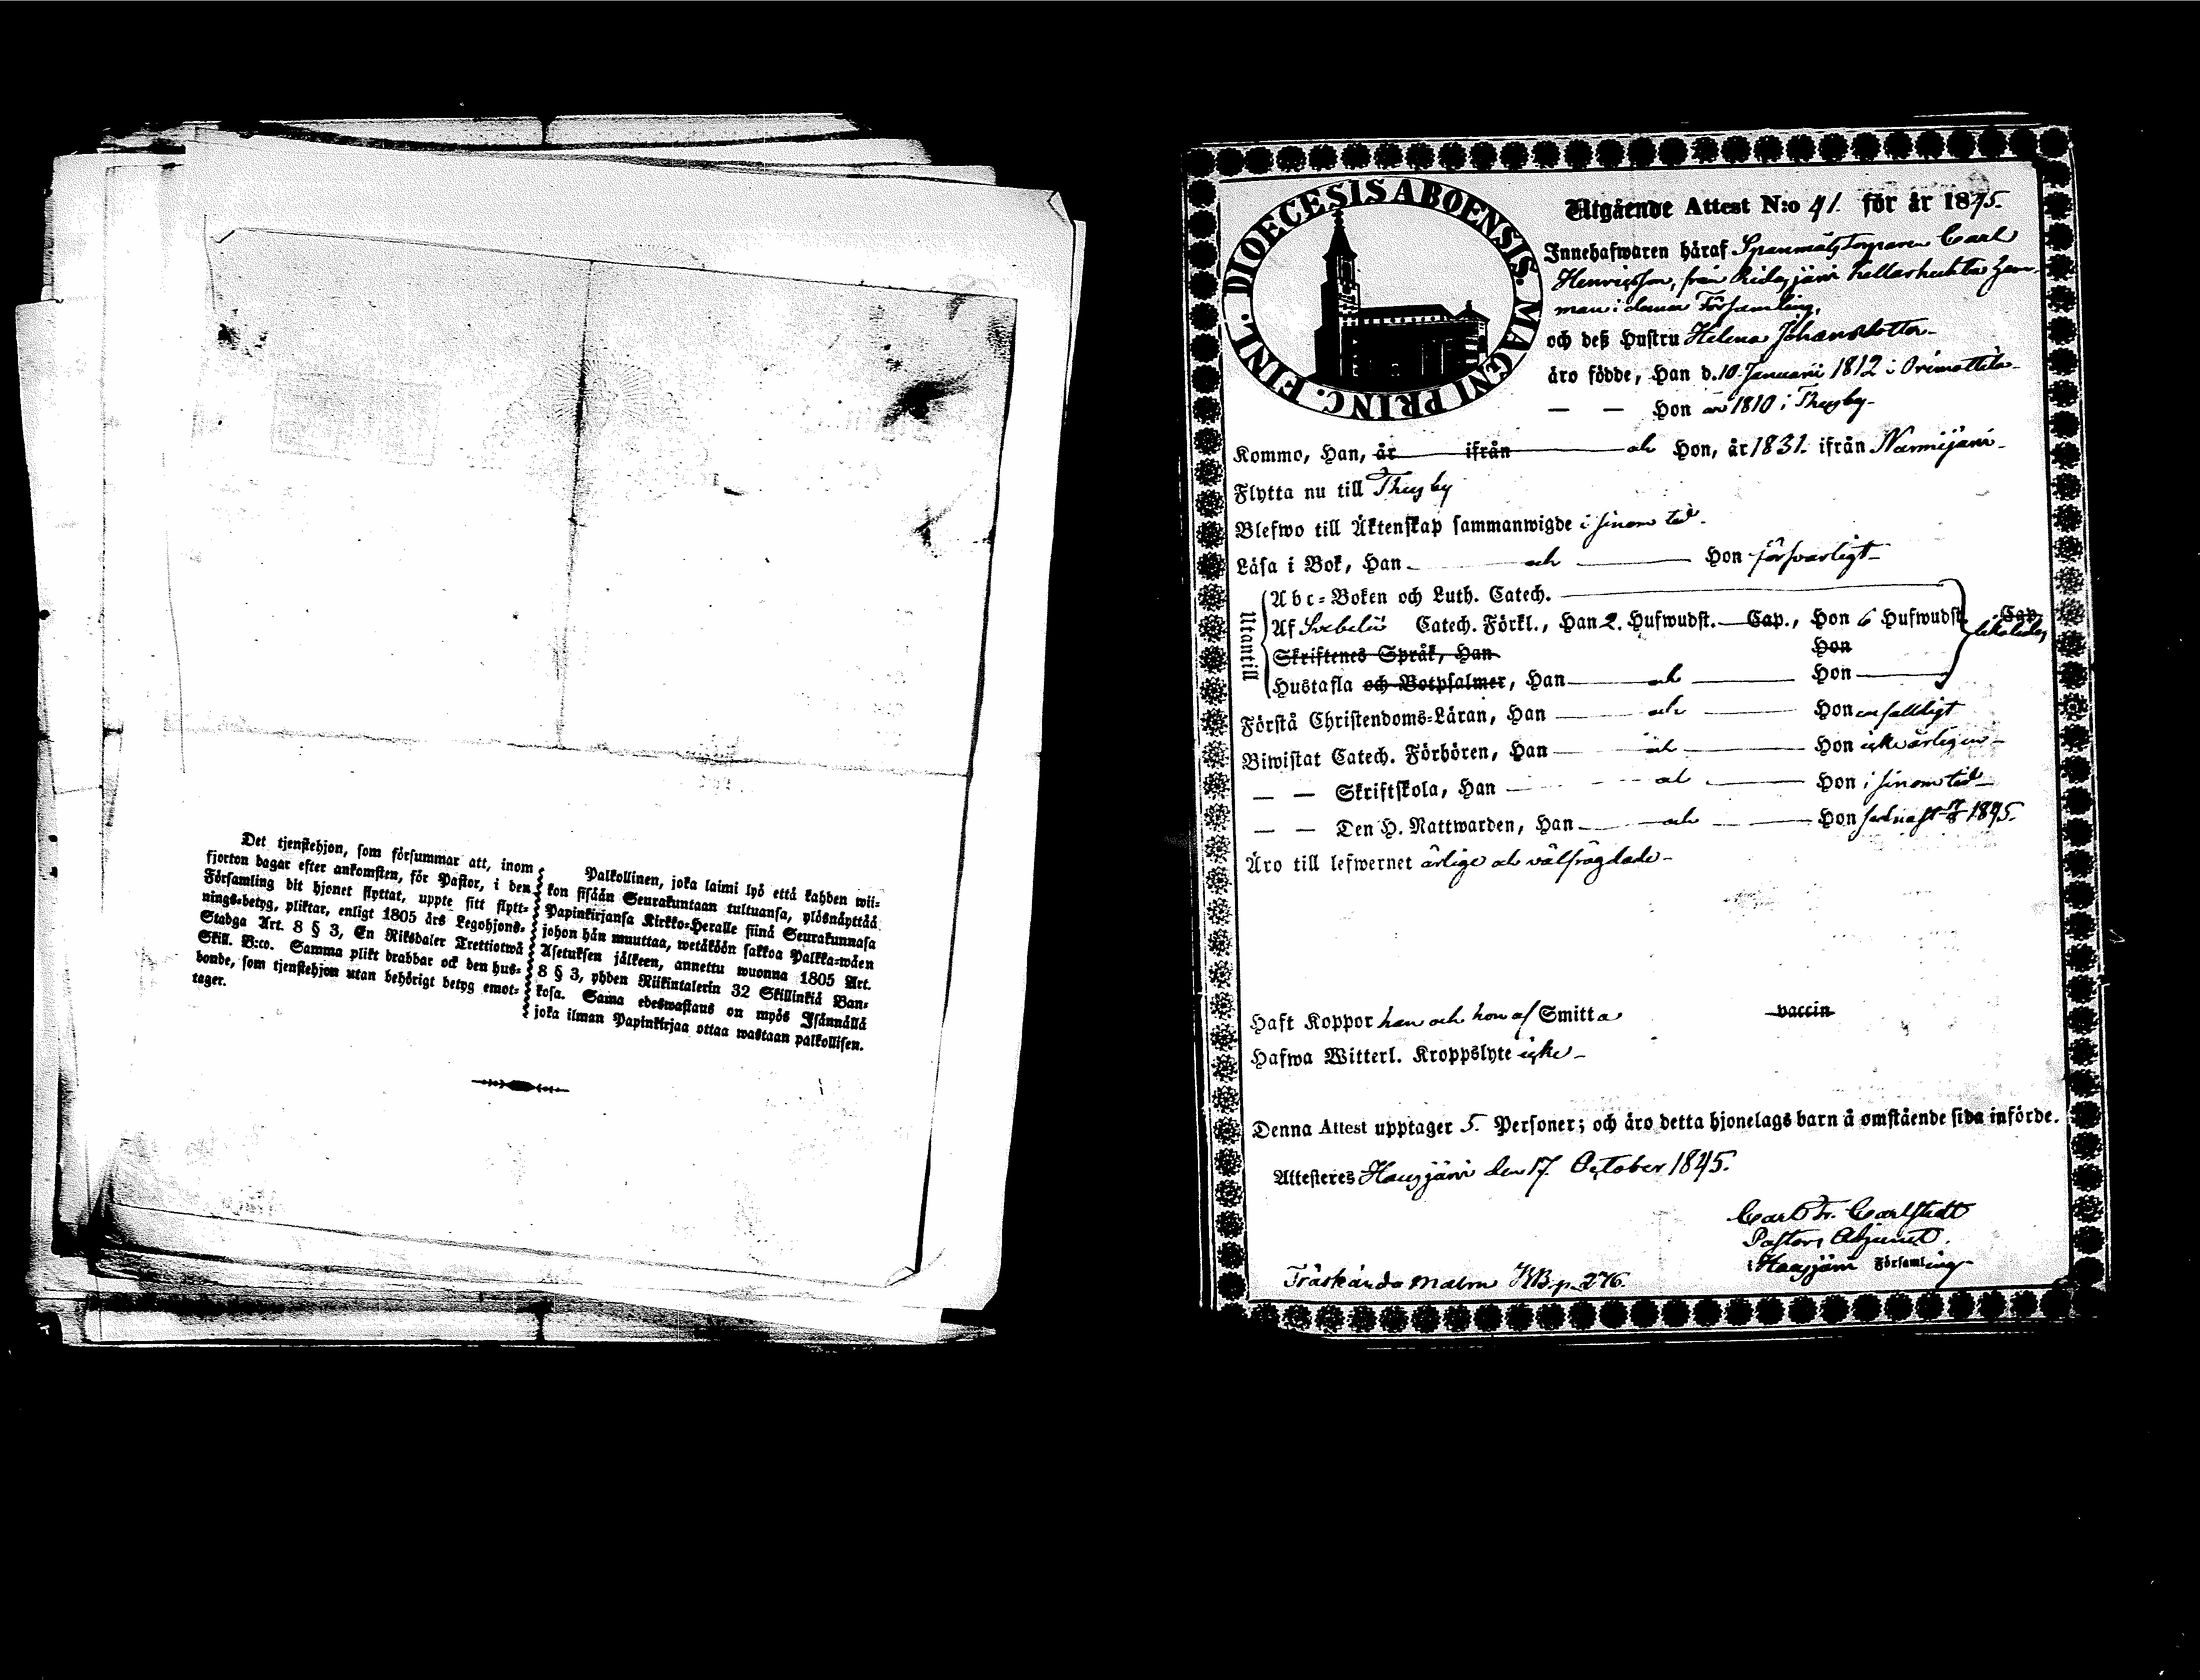 Det tjenstehjon, som försummar att, inom
fjorton dagar efter ankomsten, för Pastor, i den
Församling dit hjonet flyttat, uppte sitt flytt-
nings-betyg, pliktar, enligt 1805 års Legohjons-
Stadga Art. 8 § 3, En Riksdaler Trettiotwå
Skill. B:co. Samma plikt drabbar ock den hus-
bonde, som tjenstehjon utan behörigt betyg emot-
tager.
Palkollinen, joka laimi lyö että kahden wii-
kon sisään Seurakuntaan tultuansa, ylösnäyttää
Papinkirjansa Kirkko-Heralle siinä Seurakunnasa
johon hän muuttaa, wetäköön sakkoa Palkka-wäen
Asetuksen jälkeen, annettu wuonna 1805 Art.
8 § 3, yhden Riikintalerin 32 Skillinkiä Ban-
kosa. Sama edeswastaus on myös Isännällä
joka ilman Papinkirjaa ottaa wastaan palkollisen.
DIOECESIS ABOENSIS. MAGNI PRINC. FINL.
Utgående Attest N:o 41. för år 1845.
Innehafwaren häraf Spanmåls Torparen Carl
Henricsson, från Ridasjärvi
man i denna Församling,
och deß Hustru Helena Johansdotter
äro födde, Han d. 10 Januarii 1812 i Orimattila
— — Hon år 1810 i Thusby
Kommo, Han, år ifrån och Hon, år 1831. ifrån Nurmijärvi
Flytta nu till Thusby
Blefwo till Äktenskap sammanwigde i sinom tid.
Läsa i Bok, Han och Hon försvarligt
Utantill
Abc-Boken och Luth. Catech.
Af Svebelii Catech. Förkl., Han 2. Hufwudst. Cap., Hon 6 Hufwudst. Cap.
Skriftenes Språk, Han Hon
Hustafla och Botpsalmer, Han och Hon
Förstå Christendoms-Läran, Han och Hon enfalldigt
Biwistat Catech. Förhören, Han och Hon icke årligen
— — Skriftskola, Han och Hon i sinom tid
— — Den H. Nattwarden, Han och Hon sednast 1845.
Äro till lefwernet ärlige och välfrägdade
Haft Koppor han och hon af Smitta vaccin
Hafwa Witterl. Kroppslyte icke
Denna Attest upptager 5. Personer; och äro detta hjonelags barn å omstående sida införde.
Attesteres Hausjärvi den 17 October 1845.
Carl Fr. Carlstedt
Pastors Adjunct.
i Hausjärvi Församling
Träskända malm KB p. 276.